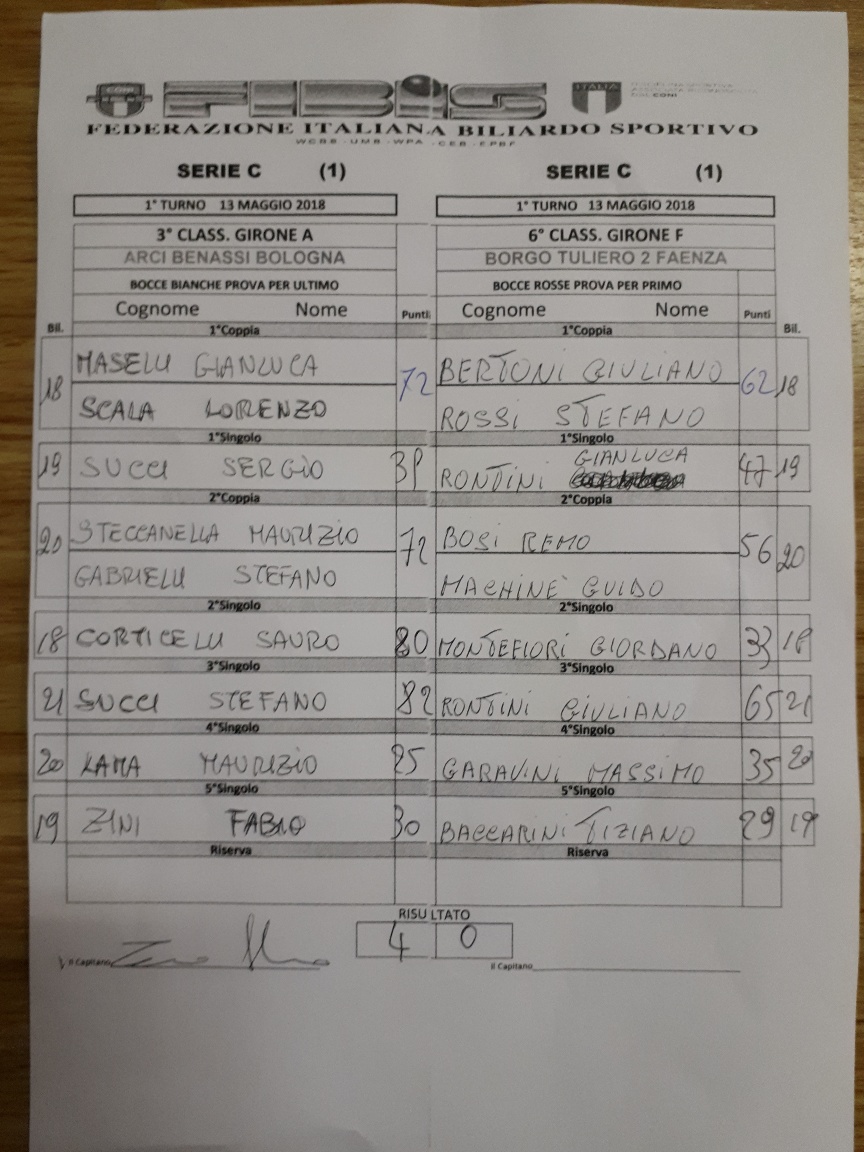 FIBiS
ITALIA
FEDERAZIONE ITALIANA BILIARDO SPORTIVO
WCBS - UMB - WPA - CEB - EPBF
SERIE C (1) SERIE C (1)
1° TURNO 13 MAGGIO 2018 1° TURNO 13 MAGGIO 2018
3° CLASS. GIRONE A 6° CLASS. GIRONE F
ARCI BENASSI BOLOGNA BORGO TULIERO 2 FAENZA
BOCCE BIANCHE PROVA PER ULTIMO BOCCE ROSSE PROVA PER PRIMO
Cognome Nome Punti Cognome Nome Punti
Bil. 1°Coppia 1°Coppia Bil.
18 MASELLI GIANLUCA 72 BERTONI GIULIANO 62 18
SCALA LORENZO ROSSI STEFANO
1°Singolo 1°Singolo
19 SUCCI SERGIO RONTINI GIANLUCA 47 19
2°Coppia 2°Coppia
20 STECCANELLA MAURIZIO 72 BOSI REMO 56 20
GABRIELLI STEFANO MACHINE' GUIDO
2°Singolo 2°Singolo
18 CORTICELLI SAURO 80 MONTEFIORI GIORDANO 33 18
3°Singolo 3°Singolo
21 SUCCI STEFANO 82 RONTINI GIULIANO 65 21
4°Singolo 4°Singolo
20 LAMA MAURIZIO 25 GARAVINI MASSIMO 35 20
5°Singolo 5°Singolo
19 ZINI FABIO 30 BACCARINI TIZIANO 29 19
Riserva Riserva
RISULTATO
4 0
Il Capitano Il Capitano